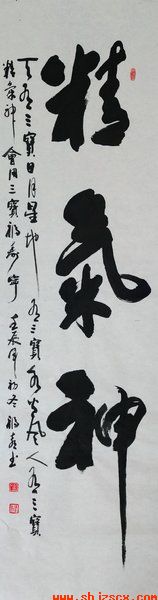 精氣神
天有三寶日月星 地有三寶水火風 人有三寶
精氣神 會用三寶
壬辰年初冬
www.shjzscx.com